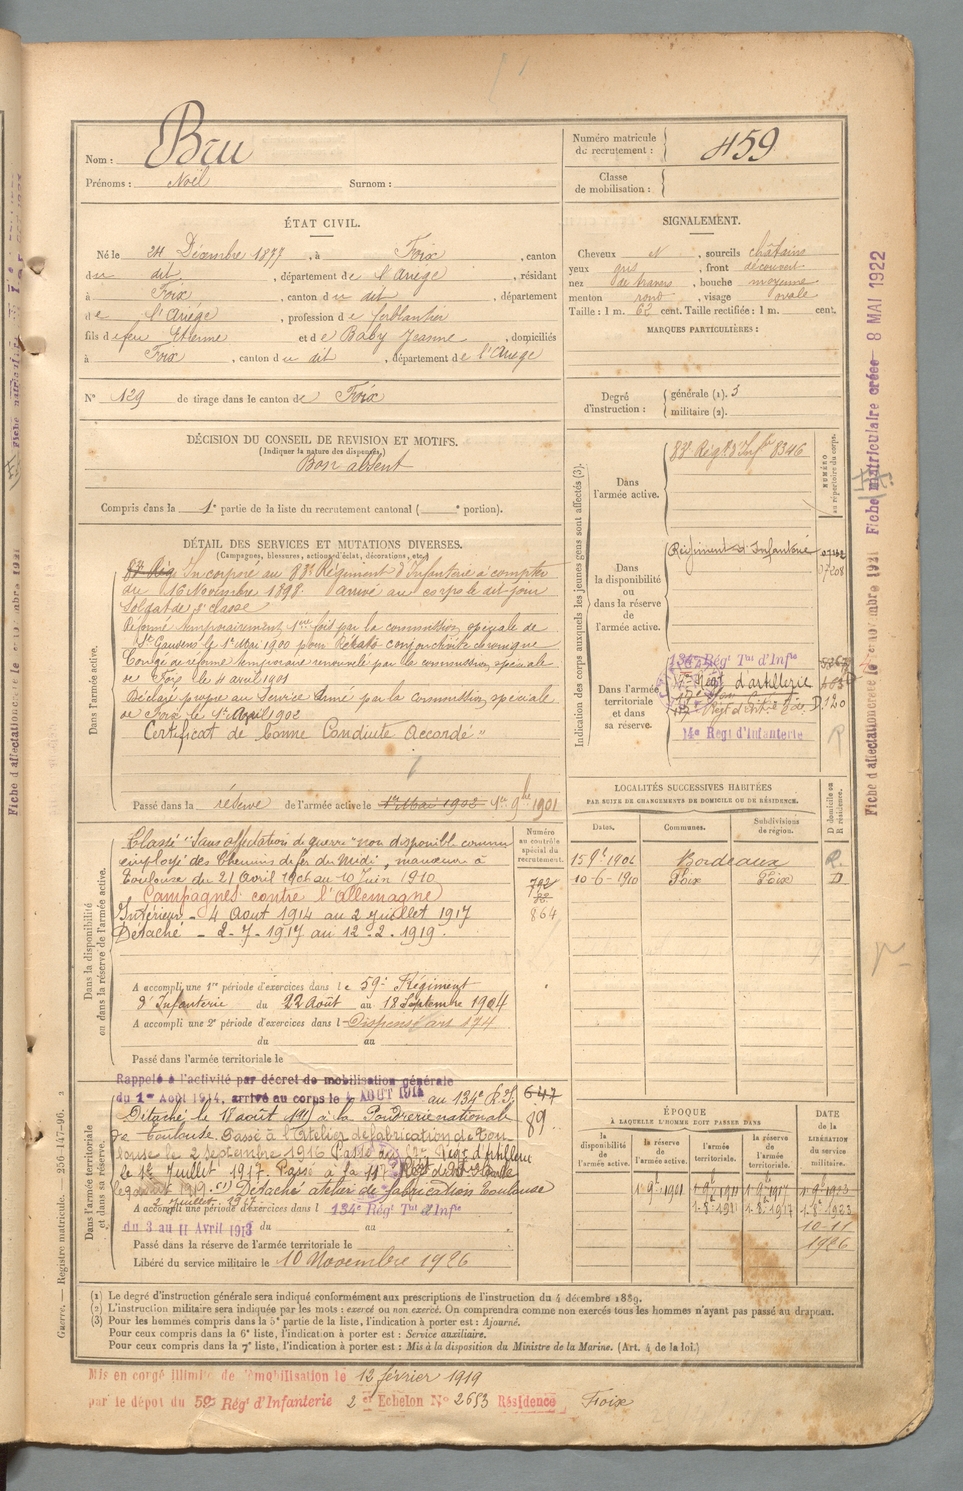 Nom : Bru
Prénoms : Noël Surnom :
Numéro matricule du recrutement : 459
Classe de mobilisation :
ÉTAT CIVIL.
Né le 24 Décembre 1877, à Foix, canton
du dit, département de l'Ariège, résidant
à Foix, canton du dit, département
de l'Ariège, profession de ferblantier
fils de feu Etienne et de Baby Jeanne, domiciliés
à Foix, canton du dit, département de l'Ariège
N° 129 de tirage dans le canton de Foix
SIGNALEMENT.
Cheveux N, sourcils châtains
yeux gris, front découvert
nez de travers, bouche moyenne
menton rond, visage ovale
Taille : 1 m. 62 cent. Taille rectifiée : 1 m. cent.
MARQUES PARTICULIÈRES :
Degré d'instruction : générale (1). 3
militaire (2).
DÉCISION DU CONSEIL DE REVISION ET MOTIFS.
(Indiquer la nature des dispenses.)
Bon absent
Compris dans la 1e partie de la liste du recrutement cantonal ( e portion).
DÉTAIL DES SERVICES ET MUTATIONS DIVERSES.
(Campagnes, blessures, actions d'éclat, décorations, etc.)
Dans l'armée active.
Incorporé au 83e Régiment d'Infanterie à compter
du 16 Novembre 1898. Arrivé au corps le dit jour
Soldat de 2e classe
Réformé temporairement 1ere fois par la commission spéciale de
St Gaudens le 1er Mai 1900 pour Kérato-conjonctivite chronique
Congé de réforme temporaire renouvelé par la commission spéciale
de Foix le 4 avril 1901
Déclaré propre au Service Armé par la Commission spéciale
de Foix le 1er Avril 1902
Certificat de bonne Conduite Accordé
Passé dans la réserve de l'armée active le 1er Mai 1902 1er 9bre 1901
Indication des corps auxquels les jeunes gens sont affectés (3).
NUMÉRO au répertoire du corps.
Dans l'armée active.
83e Régt d'Infrie 8346
Dans la disponibilité ou dans la réserve de l'armée active.
Régiment d'Infanterie
Dans l'armée territoriale et dans sa réserve.
134e Régt Tal d'Infie
Régt d'artillerie
D.120
14e Régt d'Infanterie
Dans la disponibilité ou dans la réserve de l'armée active.
Numéro au contrôle spécial du recrutement.
Classé "Sans affectation de guerre" non disponible comme
employé des Chemins de fer du Midi, manœuvre à
Toulouse du 21 Avril 1906 au 10 Juin 1910
Campagnes contre l'Allemagne
Intérieur - 4 Aout 1914 au 2 Juillet 1917
Détaché - 2-7-1917 au 12-2-1919.
792
864
A accompli une 1re période d'exercices dans le 59e Régiment
d'Infanterie du 22 Août au 18 Septembre 1904
A accompli une 2e période d'exercices dans l Dispensé art 174
du au
Passé dans l'armée territoriale le
LOCALITÉS SUCCESSIVES HABITÉES
PAR SUITE DE CHANGEMENTS DE DOMICILE OU DE RÉSIDENCE.
Dates. Communes. Subdivisions de région. D domicile ou R résidence.
Bordeaux R.
10-6-1910 Foix Foix D
Dans l'armée territoriale et dans sa réserve.
Rappelé à l'activité par décret de mobilisation générale
du 1er Août 1914, arrivé au corps le 4 AOUT 1914 au 134e R.I. 647
Détaché le 18 août 1914 à la Poudrerie nationale 89
de Toulouse. Passé à l'Atelier de fabrication de Tou-
louse le 2 septembre 1916 Passé au Régt d'Artillerie
le 1er Juillet 1917. Passé à la
Détaché atelier de fabrication Toulouse
2 Juillet 1917
A accompli une période d'exercices dans l 134e Régt Tal d'Infie
du 3 au 11 Avril 1913 du au
Passé dans la réserve de l'armée territoriale le
Libéré du service militaire le 10 Novembre 1926
ÉPOQUE À LAQUELLE L'HOMME DOIT PASSER DANS
la disponibilité de l'armée active. la réserve de l'armée active. l'armée territoriale. la réserve de l'armée territoriale. DATE DE LA LIBÉRATION du service militaire.
10-11
1926
(1) Le degré d'instruction générale sera indiqué conformément aux prescriptions de l'instruction du 4 décembre 1889.
(2) L'instruction militaire sera indiquée par les mots : exercé ou non exercé. On comprendra comme non exercés tous les hommes n'ayant pas passé au drapeau.
(3) Pour les hommes compris dans la 5e partie de la liste, l'indication à porter est : Ajourné.
Pour ceux compris dans la 6e liste, l'indication à porter est : Service auxiliaire.
Pour ceux compris dans la 7e liste, l'indication à porter est : Mis à la disposition du Ministre de la Marine. (Art. 4 de la loi.)
Mis en congé illimité de démobilisation le 12 février 1919
par le dépot du 59e Régt d'Infanterie 2 er Echelon N° 2653 Résidence Foix
Guerre. — Registre matricule. 256-147-96. 2
Fiche matriculaire créée 8 MAI 1922
Fiche d'affectation créée le 1er novembre 1921